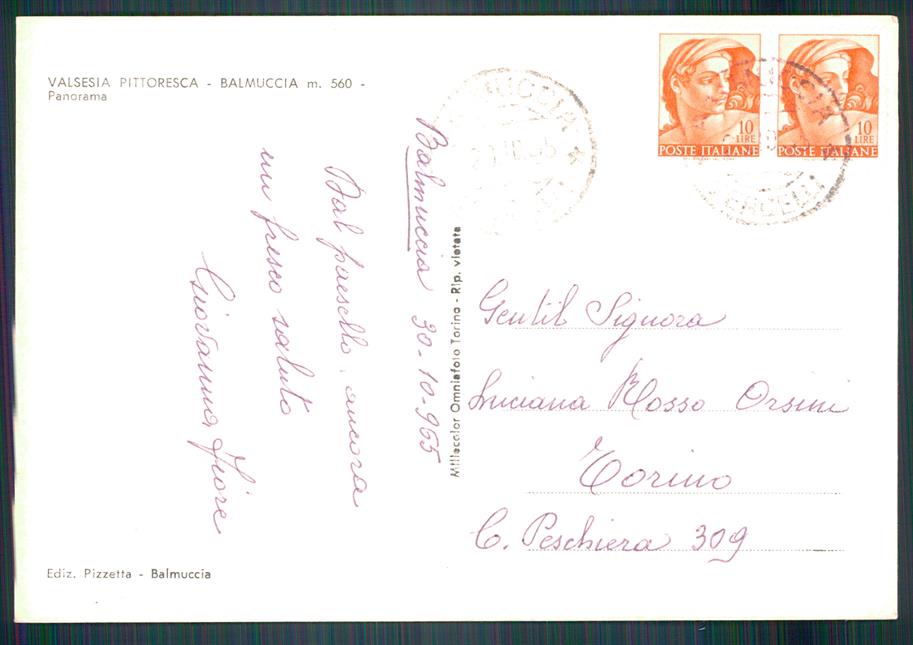 VALSESIA PITTORESCA - BALMUCCIA m. 560 -
Panorama
Balmuccia 30-10-965
Dal paesello, ancora
un fresco saluto
Giovanna Fiore
Ediz. Pizzetta - Balmuccia
Millecolor Omniafoto Torino - Rip. vietata
10
LIRE
POSTE ITALIANE
10
LIRE
POSTE ITALIANE
Gentil Signora
Luciana Rosso Orsini
Torino
C. Peschiera 309